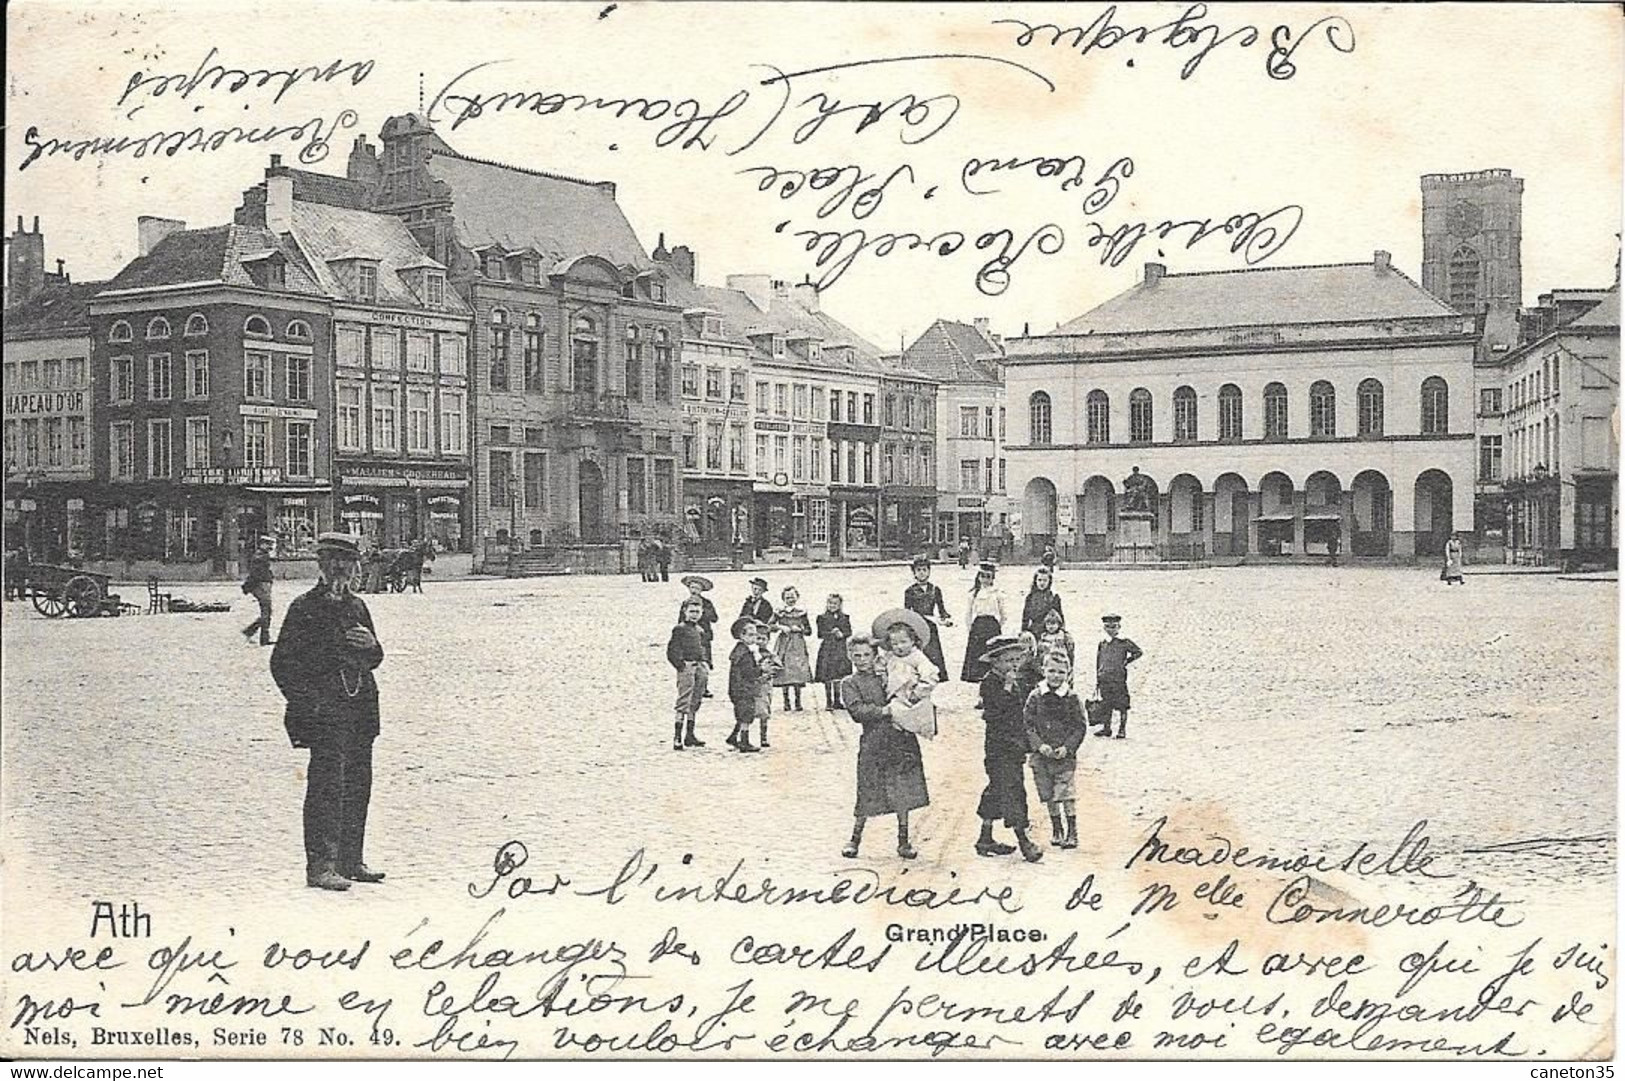 Mademoiselle,
Par l'intermédiaire de Melle Connerotte
avec qui vous échangez des cartes illustrées, et avec qui je suis
moi-même en relations, je me permets de vous demander de
bien vouloir échanger avec moi également.
Remerciements
anticipés
Clotilde
Grand'Place
Ath (Hainaut)
Belgique
Ath
Grand'Place.
Nels, Bruxelles, Serie 78 No. 49.
HAPEAU D'OR
CONFECTION
caneton35